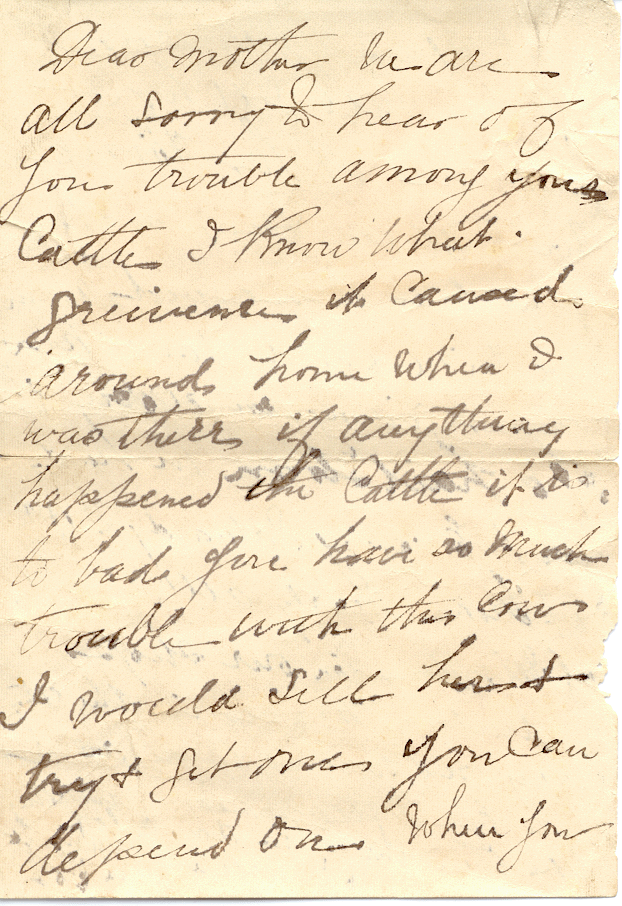 Dear Mother We are
all sorry to hear of
your trouble among your
Cattle I Know What
greivence it Caused
around home When I
was there if anything
happened the Cattle it is
to bad you have so Much
trouble with the Cow
I would sell her &
try & get one you Can
depend on When you